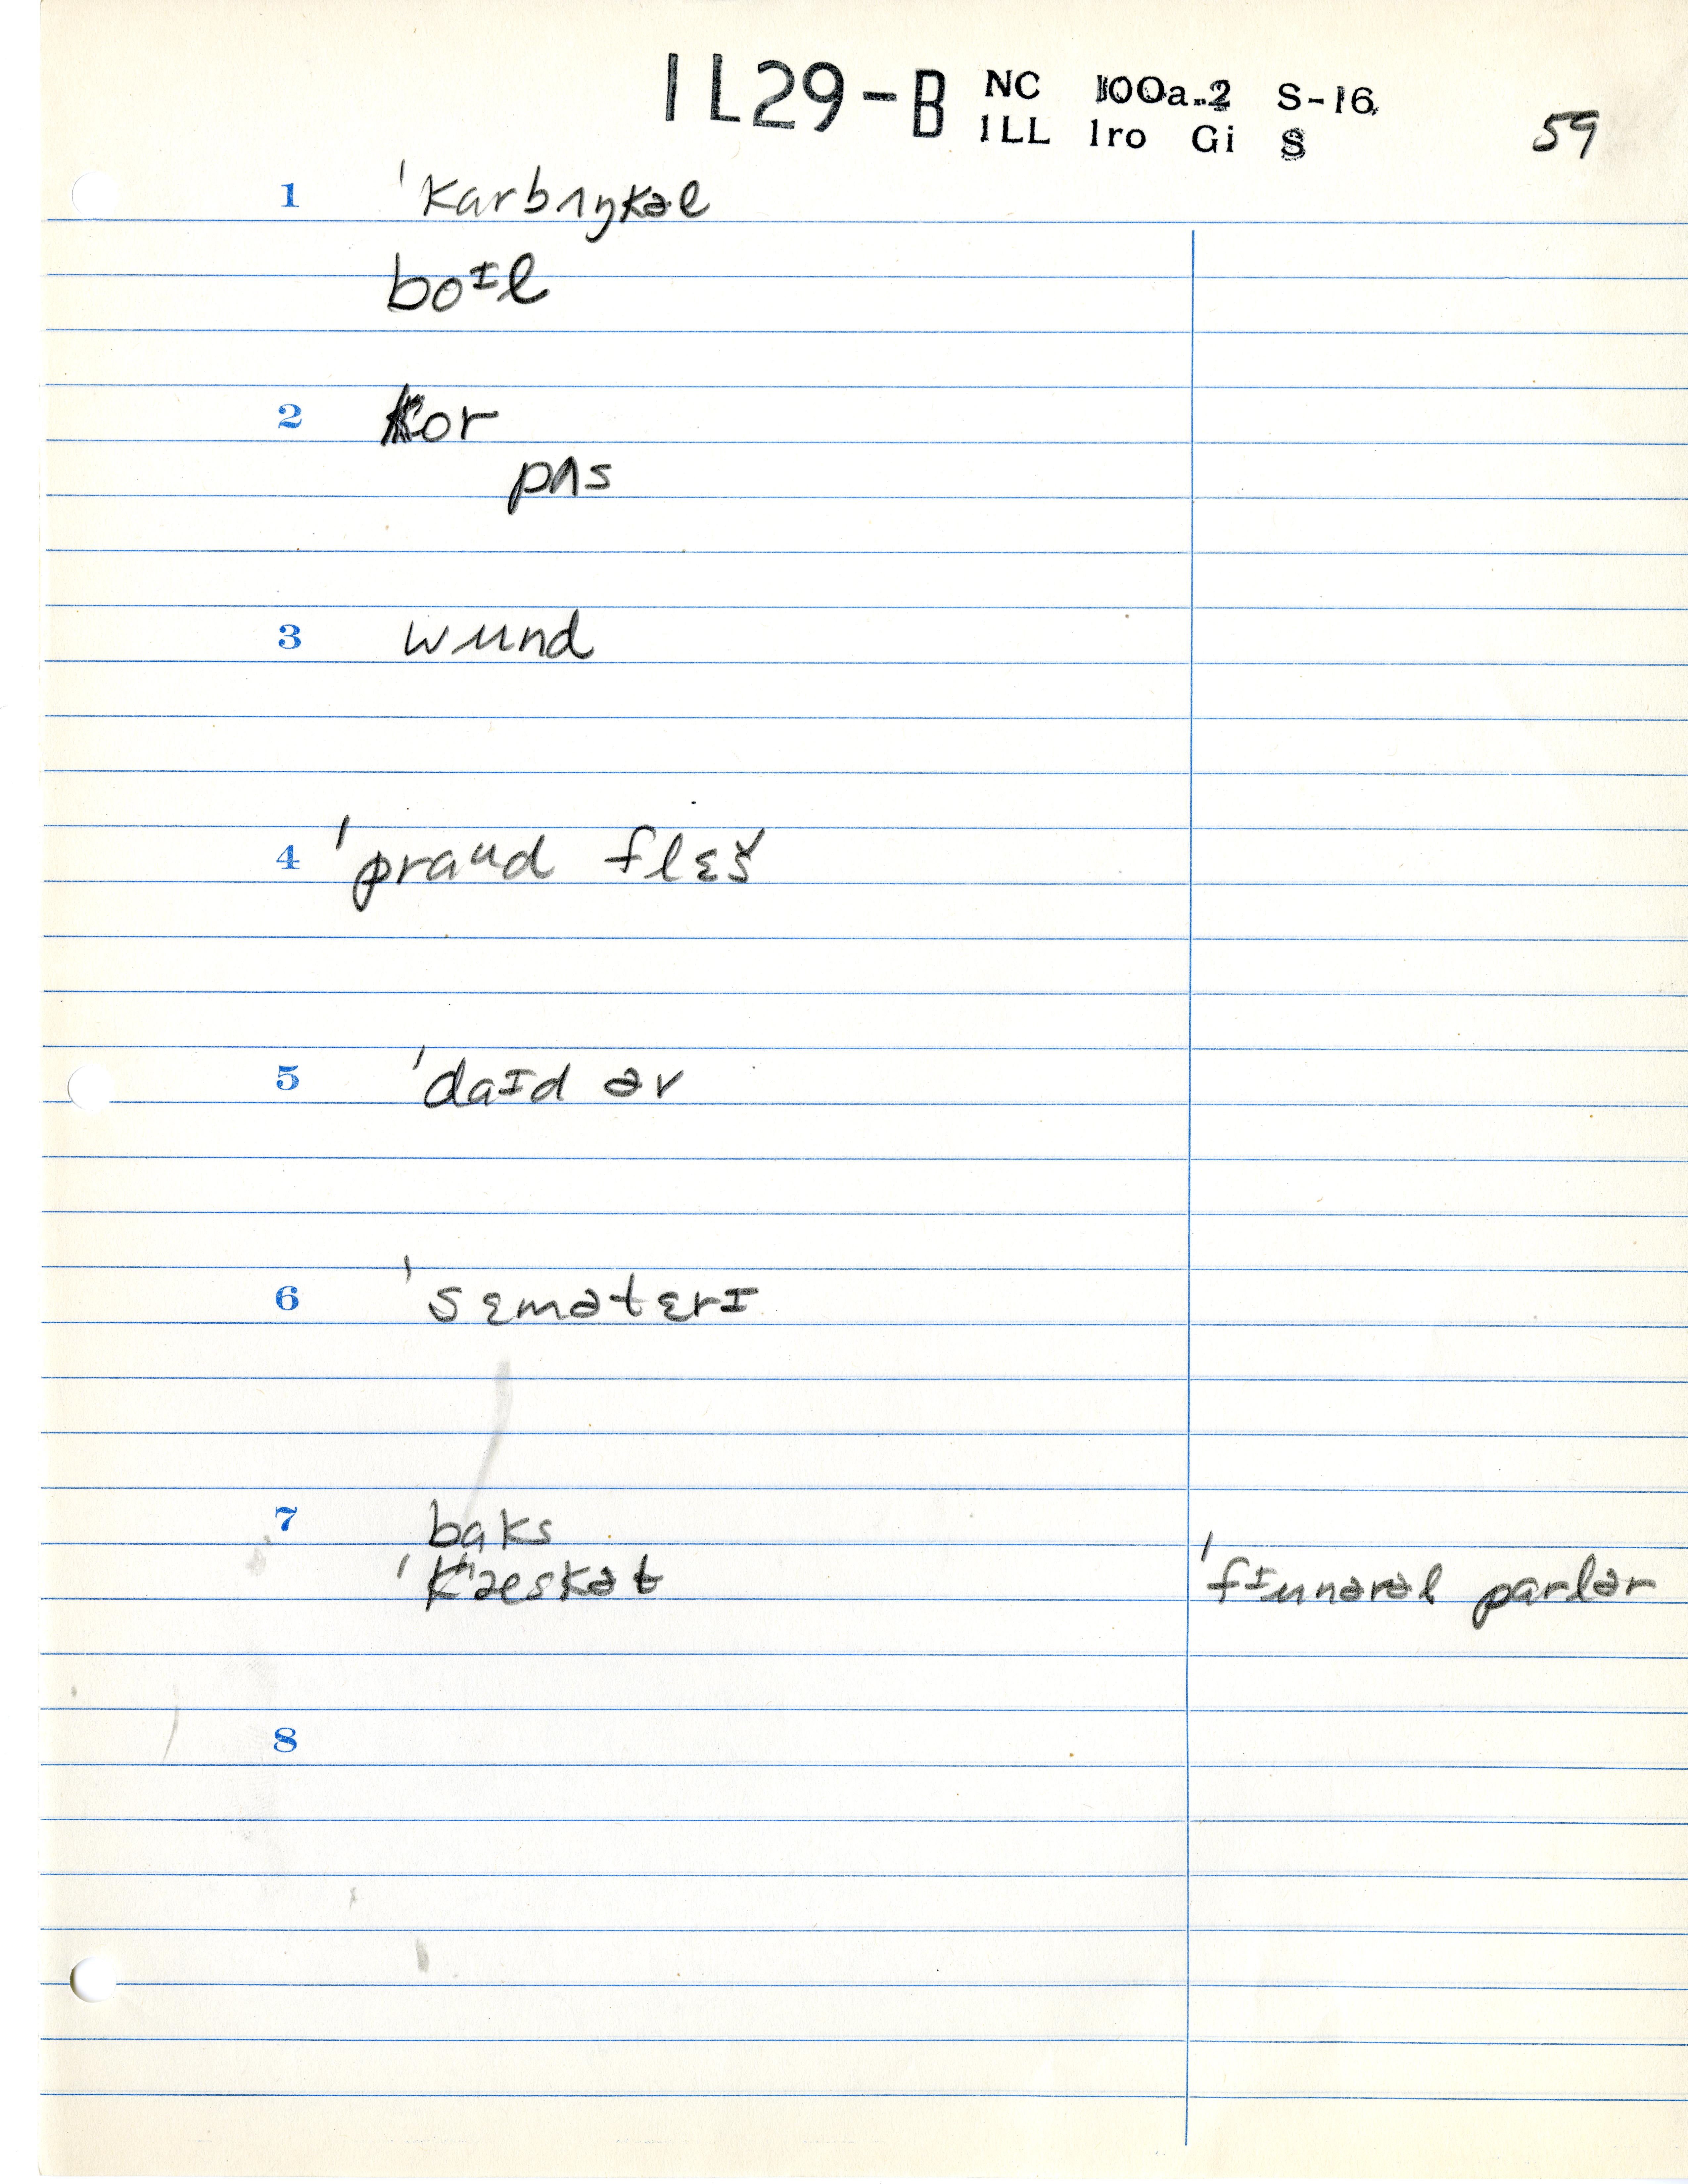 IL29-B NC 100a.2 S-16
ILL Iro Gi S 59
1 'karbʌŋkəl
boɪl
2 kor
pʌs
3 wund
4 'praud flɛš
5 'daɪd əv
6 'sɛmətɛrɪ
7 baks
'kæskət 'fɪunərəl parlər
8